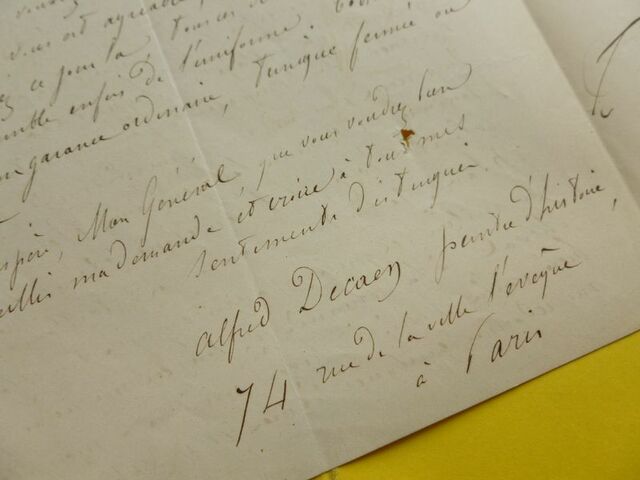 vous est agréable,
ce pour la
ensemble enfin de l'uniforme.
garance ordinaire, tunique fermée ou
Mon Général, que vous voudrez bien
ma demande et croire à tout mes
sentiments distingués.
Alfred Decaen peintre d'histoire,
74 rue de la ville l'evêque
à Paris